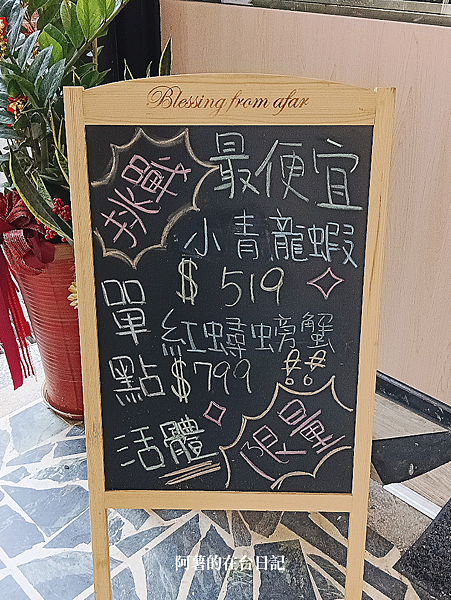 Blessing from afar
挑戰
最便宜
小青龍蝦
$519
單點
紅蟳螃蟹
$799
活體
限量
阿薯的在台日記